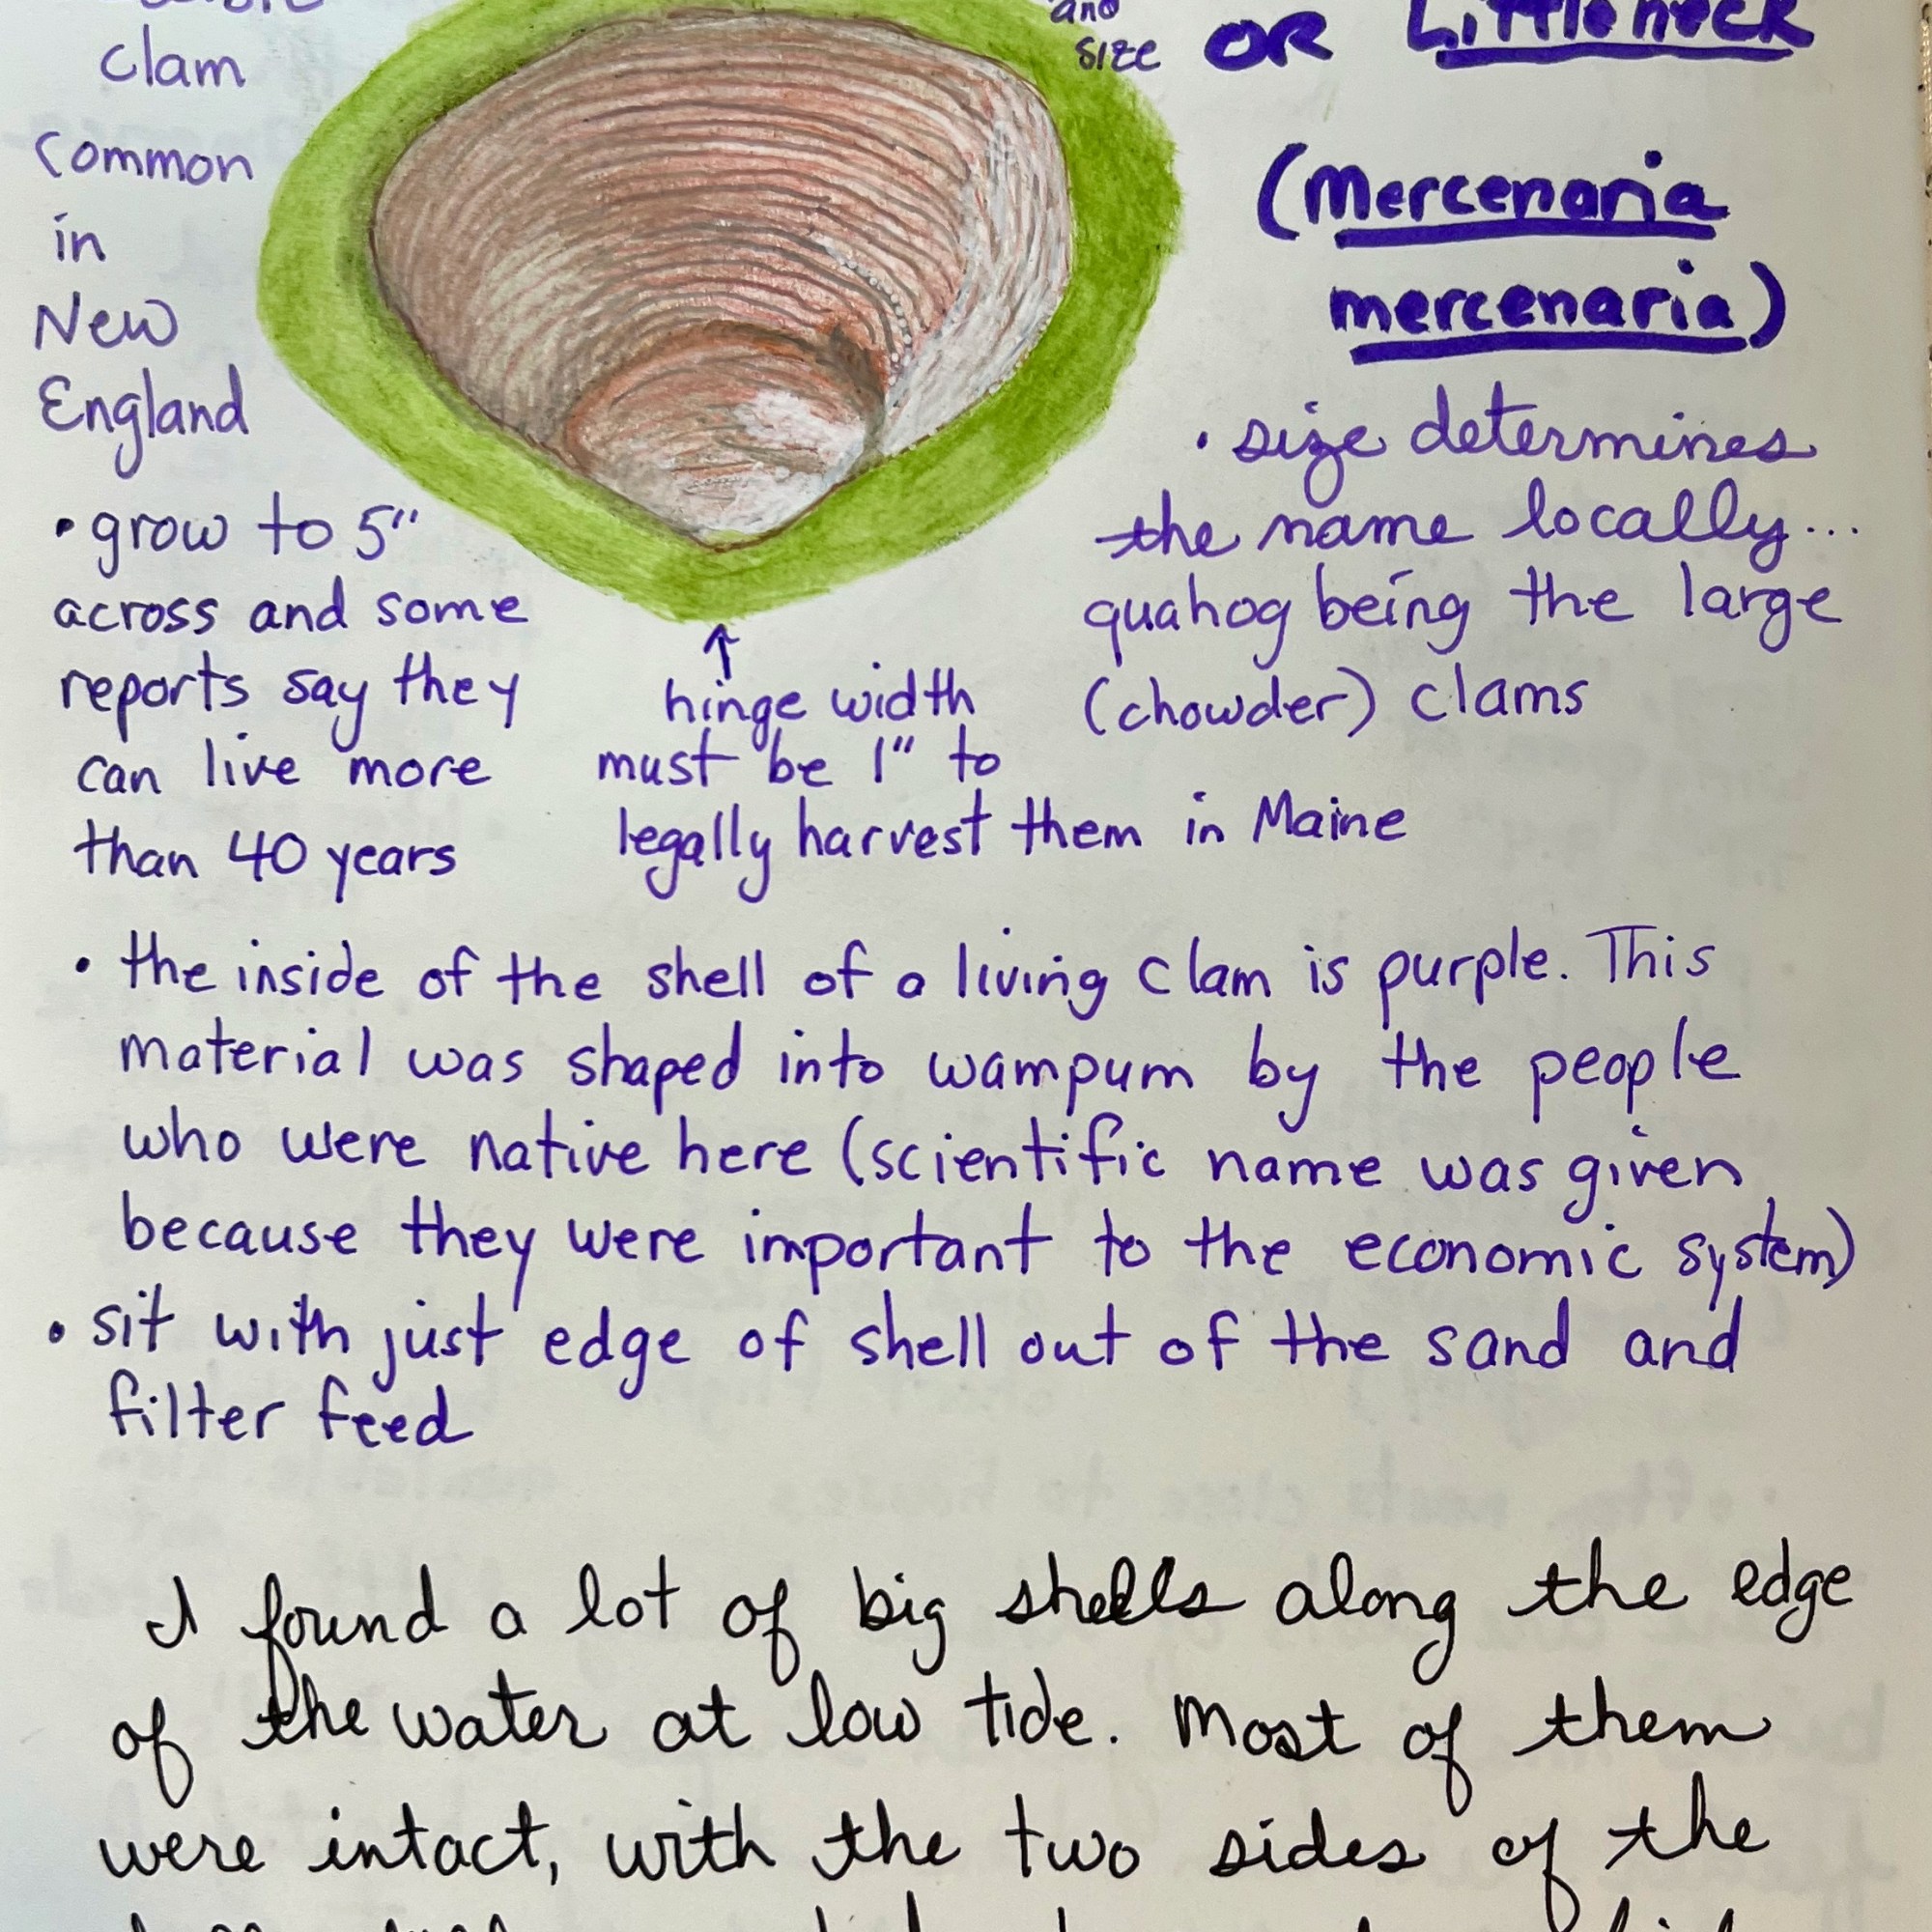 clam
common
in
New
England
and
size
OR Littleneck
(Mercenaria
mercenaria)
• size determines
the name locally...
quahog being the large
(chowder) clams
• grow to 5"
across and some
reports say they
can live more
than 40 years
↑
hinge width
must be 1" to
legally harvest them in Maine
• the inside of the shell of a living clam is purple. This
material was shaped into wampum by the people
who were native here (scientific name was given
because they were important to the economic system)
• sit with just edge of shell out of the sand and
filter feed
I found a lot of big shells along the edge
of the water at low tide. Most of them
were intact, with the two sides of the